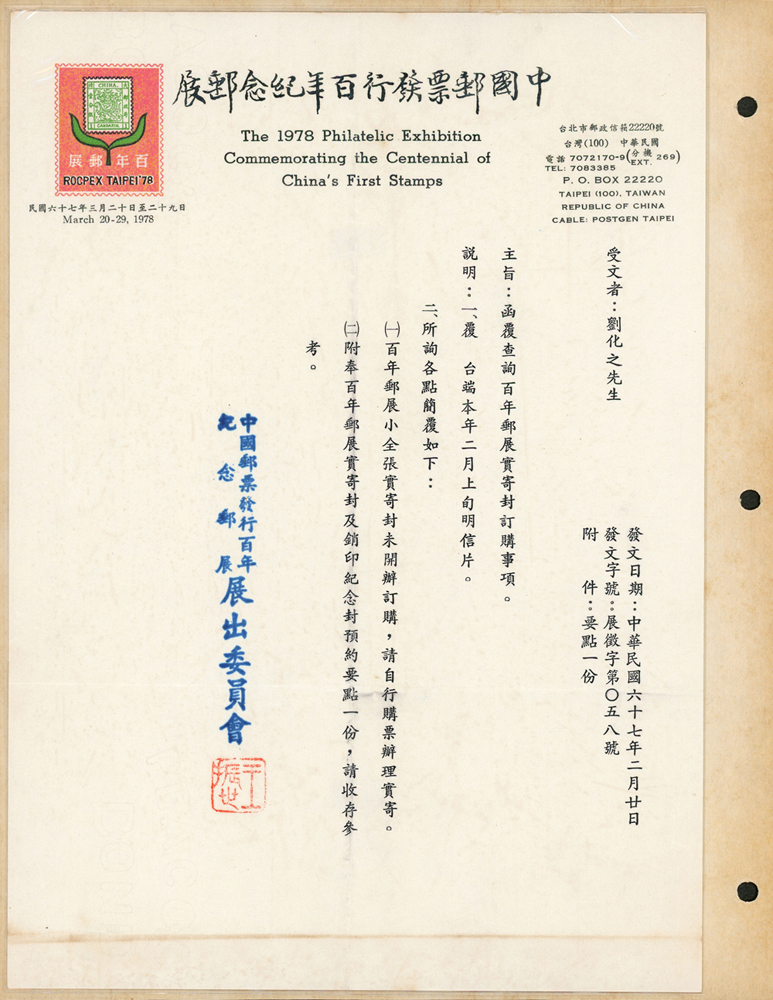 中國郵票發行百年紀念郵展
The 1978 Philatelic Exhibition
Commemorating the Centennial of
China's First Stamps
CHINA
百年郵展
ROCPEX TAIPEI'78
民國六十七年三月二十日至二十九日
March 20-29, 1978
台北市郵政信箱22220號
台灣(100) 中華民國
電話 7072170-9(分機 EXT. 269)
TEL: 7083385
P. O. BOX 22220
TAIPEI (100), TAIWAN
REPUBLIC OF CHINA
CABLE: POSTGEN TAIPEI
發文日期：中華民國六十七年二月廿日
發文字號：展徵字第〇五八號
附　件：要點一份
受文者：劉化之先生
主旨：函覆查詢百年郵展實寄封訂購事項。
說明：一、覆　台端本年二月上旬明信片。
二、所詢各點簡覆如下：
㈠百年郵展小全張實寄封未開辦訂購，請自行購票辦理實寄。
㈡附奉百年郵展實寄封及銷印紀念封預約要點一份，請收存參
考。
中國郵票發行百年
紀念郵展
展出委員會